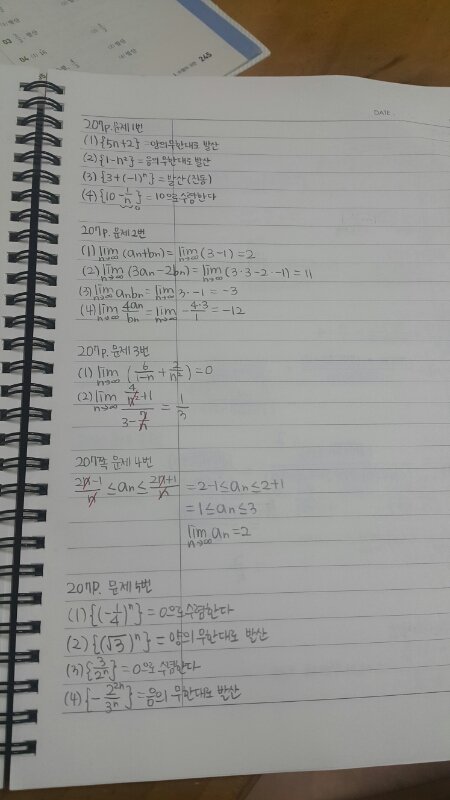 245
DATE.
207p. 문제1번
(1) {5n+2} = 양의 무한대로 발산
(2) {1-n²} = 음의 무한대로 발산
(3) {3+(-1)ⁿ} = 발산(진동)
(4) {10-1/n} = 10으로 수렴한다
0
207p. 문제2번
(1) lim n→∞ (an+bn) = lim n→∞ (3-1) = 2
(2) lim n→∞ (3an-2bn) = lim n→∞ (3·3-2·-1) = 11
(3) lim n→∞ anbn = lim n→∞ 3·-1 = -3
(4) lim n→∞ 4an/bn = lim n→∞ -4·3/1 = -12
207p. 문제3번
(1) lim n→∞ (6/1-n + 2/n²) = 0
(2) lim n→∞ (4/n²+1)/(3-7/n) = 1/3
207쪽 문제 4번
2n-1/n ≤ an ≤ 2n+1/n = 2-1 ≤ an ≤ 2+1
= 1 ≤ an ≤ 3
lim n→∞ an = 2
207P. 문제 5번
(1) {(-1/4)ⁿ} = 0으로 수렴한다
(2) {(√3)ⁿ} = 양의 무한대로 발산
(3) {3/2ⁿ} = 0으로 수렴한다
(4) {-2²ⁿ/3ⁿ} = 음의 무한대로 발산